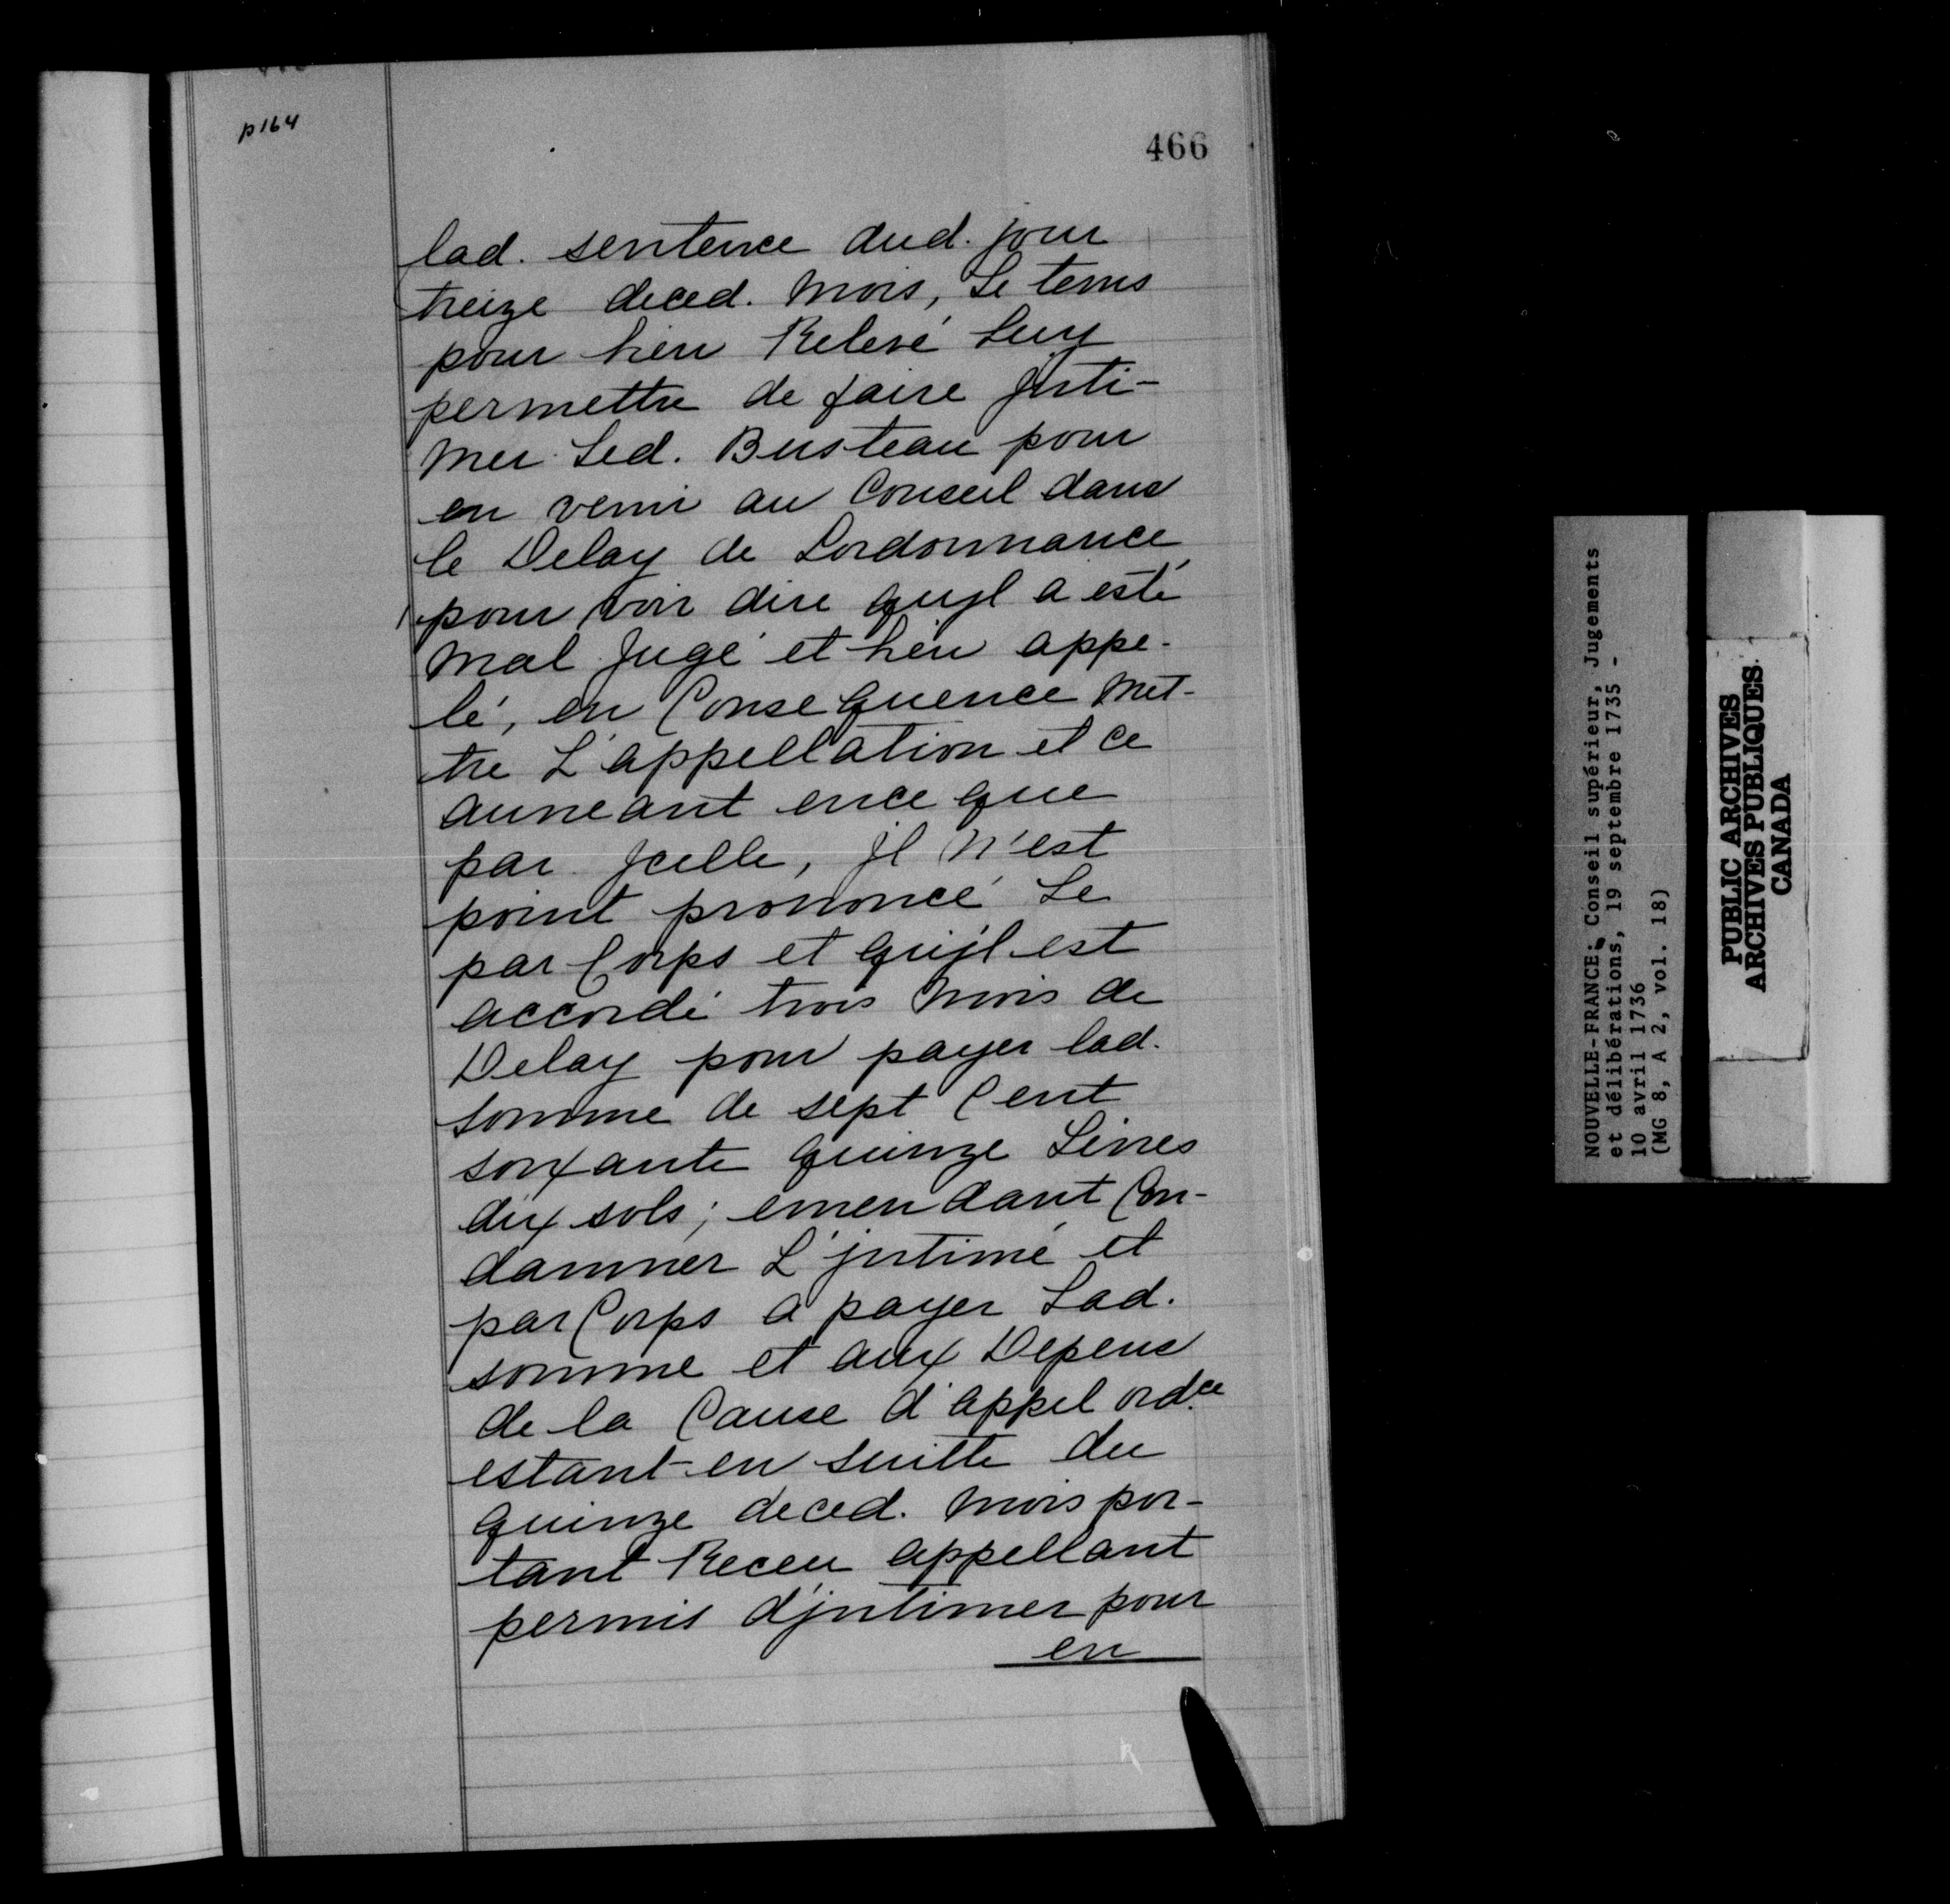 p164
466
lad. sentence dud. jour
treize deced. mois, Le tems
pour bien Relevé Luy
permettre de faire Jnti-
mer Led. Busteau pour
en venir au Conseil dans
le Delay de Lordonnance
pour voir dire quyl a esté
mal Jugé et bien appe-
lé, en Consequence Met-
tre L'appellation et ce
auneant ence que
par Jcelle, Jl N'est
point prononcé Le
par Corps et quijl est
accordé trois mois de
Delay pour payer lad.
somme de sept Cent
soixante quinze Livres
dix sols; emendant Con-
damner L'jntimé et
par Corps a payer Lad.
somme et aux Depens
de la Cause d'appel ord.ce
estant en suitte du
quinze deced. mois por-
tant Receu appellant
permis d'jntimer pour
en
NOUVELLE-FRANCE: Conseil supérieur, Jugements
et délibérations, 19 septembre 1735 -
10 avril 1736
(MG 8, A 2, vol. 18)
PUBLIC ARCHIVES
ARCHIVES PUBLIQUES
CANADA